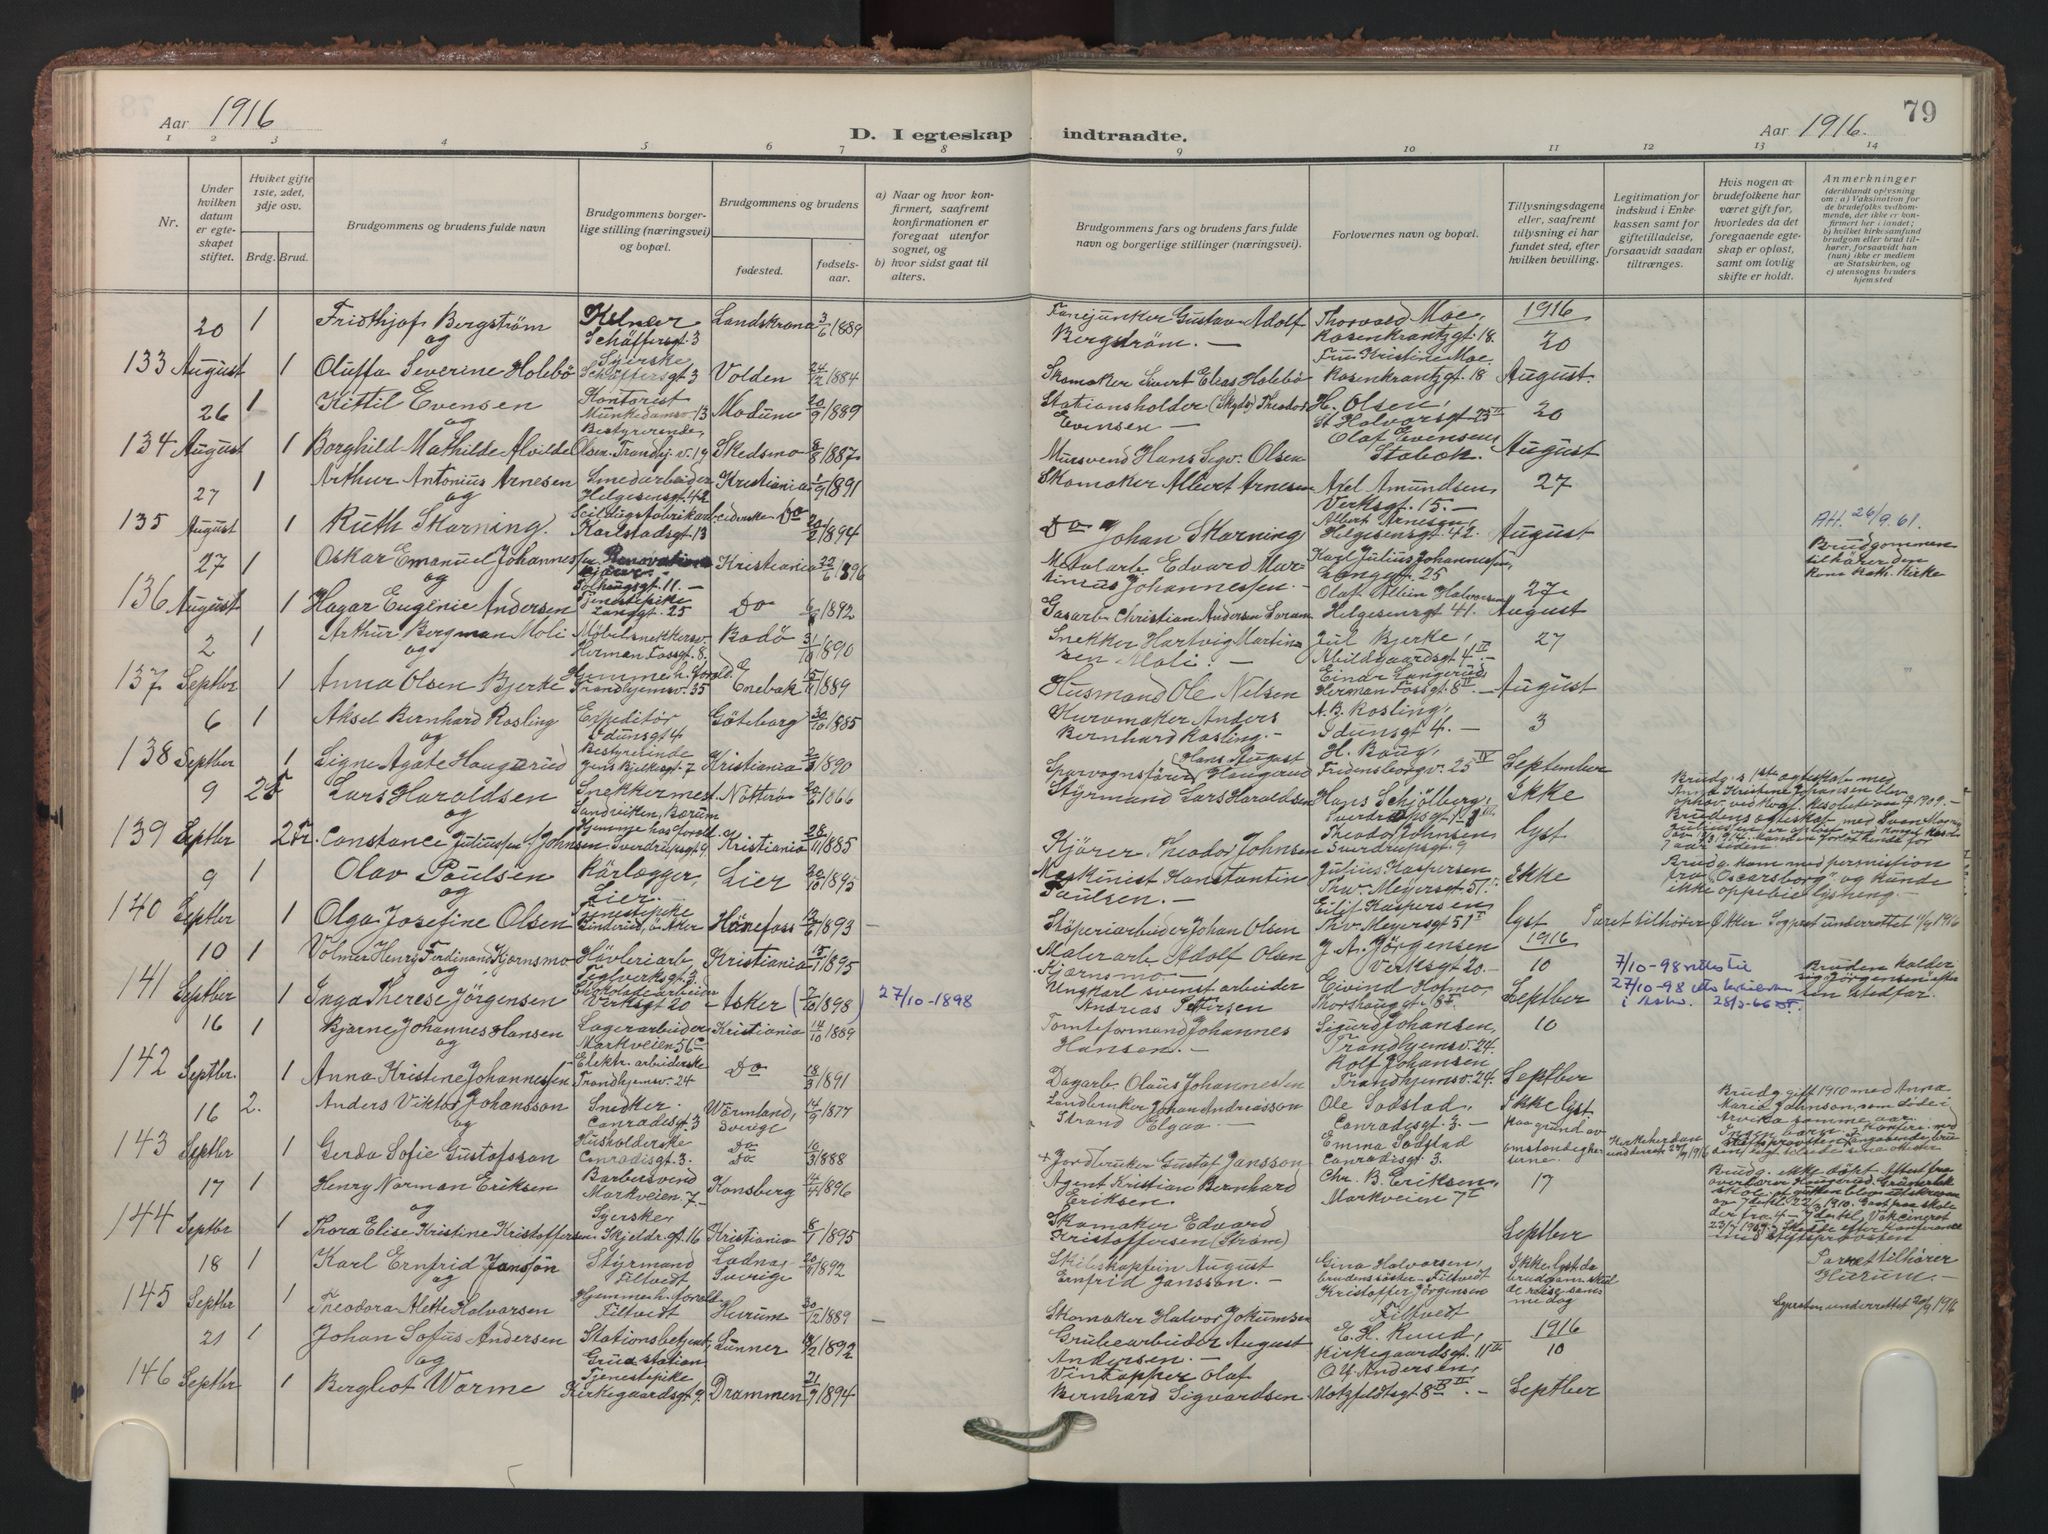 79
Aar 1916
D. I egteskap indtraadte.
Aar 1916.
1 2 3 4 5 6 7 8 9 10 11 12 13 14
Nr.
Under hvilken datum er egteskapet stiftet.
Hviket gifte 1ste, 2det, 3dje osv.
Brdg. Brud.
Brudgommens og brudens fulde navn
Brudgommens borgerlige stilling (næringsvei) og bopæl.
Brudgommens og brudens
fødested.
fødselsaar.
a) Naar og hvor konfirmert, saafremt konfirmationen er foregaat utenfor sognet, og
b) hvor sidst gaat til alters.
Brudgommens fars og brudens fars fulde navn og borgerlige stillinger (næringsvei).
Forlovernes navn og bopæl.
Tillysningsdagene eller, saafremt tillysning ei har fundet sted, efter hvilken bevilling.
Legitimation for indskud i Enkekassen samt for giftetilladelse, forsaavidt saadan tiltrænges.
Hvis nogen av brudefolkene har været gift før, hvorledes da det foregaaende egteskap er opløst, samt om lovlig skifte er holdt.
Anmerkninger
(deriblandt oplysning om: a) Vaksination for de brudefolks vedkommende, der ikke er konfirmert her i landet; b) hvilket kirkesamfund brudgom eller brud tilhører, forsaavidt han (hun) ikke er medlem av Statskirken, og c) utensogns bruders hjemsted
133 20 August 1 Fridthjof Bergström Kelner Schäffersgt. 3 Landskrona 3/6 1889 Fanejunker Gustav Adolf Bergström. — Thorvald Moe, Rosenkrantzgt. 18. 1916 20
og
1 Oluffa Severine Holebö Syerske Schäffersgt 3 Volden 24/2 1884 Skomaker Sivert Elias Holebö Fru Kristine Moe Rosenkrantzgt 18 August.
134 26 August 1 Kittil Evensen Kontorist Munkedamsv. 13 Modum 20/9 1889 Stationsholder (Skyds) Theodor Evensen — H. Olsen, St Halvorsgt 25 II 20
og
1 Borghild Mathilde Alvilde Olsen Bestyrerinde, Trondhj. v. 19 Skedsmo 8/8 1887 Mursvend Hans Sigv. Olsen Olaf Evensen, Stabæk. August
135 27 August 1 Arthur Antonius Arnesen Smedarbeider Helgesensgt 42 Kristiania 1/9 1891 Skomaker Albert Arnesen Axel Amundsen, Verksgt. 15. — 27
og
1 Ruth Skarning. Karlstadsgt. 13 Do 20/2 1894 Do Johan Skarning Albert Arnesen, Helgesensgt 42. August
136 27 August 1 Oskar Emanuel Johannessen Tolhusgt. 11. — Kristiania 22/6 1896 Metalarb Edvard Martinius Johannessen. — Karl Julius Johannessen, Langgt. 25 27 AH. 26/9. 61. Brudgommen tilhører den rom. kath. kirke
og
1 Hagar Eugenie Andersen Tjenestepike Langgt. 25 Do 1892 Gasarb. Christian Andersen Olaf Albin Halvorsen Helgesensgt 41. August
137 2 Septbr 1 Arthur Bergman Moli Möbelsnekkersv. Herman Fossgt. 8. Bodö 31/10 1890 Snekker Hartvig Martinsen Moli. — Jul Bjerke, Abildgaardsgt 4 II. — 27
og
1 Anna Olsen Bjerke Hjemme h. foræld. Trondhjemsv. 35 Enebak 15/11 1889 Husmand Ole Nilsen Einar Langerud Herman Fossgt. 8 II. — August
138 6 Septbr 1 Aksel Bernhard Rosling Expeditör Idunsgt 4 Göteborg 30/10 1885 Kurvmaker Anders Bernhard Rosling. — A. B. Rosling, Idunsgt 4. — 3
og
1 Signe Agate Haugerud Bestyrerinde Jens Bjelkesgt. 7 Kristiania 1890 Sporvognsförer Hans August Haugerud H. Boug, Fridensborgv. 25 IV September
139 9 Septbr 2 F Lars Haraldsen Snekkermest. Sandviken, Bærum Nötterö 20/6 1866 Styrmand Lars Haraldsen Hans Schjölberg, Ikke Brudg.s 1ste egteskab med Anna Kristine Johansen blev ophæv. ved Kgl. Resolution 1909. —
og
2 Fr. Constance Juliussen f. Johnsen Hjemme hos foræld. Sverdrupsgt 9 Kristiania 28/11 1885 Kjörer Theodor Johnsen Theodor Johnsen Sverdrupsgt. 9 lyst
140 9 Septbr 1 Olav Poulsen Rörlægger, Lier Lier 20/10 1895 Maskinist Konstantin Paulsen. — Julius Kaspersen Thv. Meyersgt 51 I Ikke Brudg. kom med permistion fra „Oscarsborg" og kunde ikke oppebie lysning.
og
1 Olga Josefine Olsen Tjenestepike Hönefoss 1893 — Stöperiarbeider Johan Olsen Eilif Kaspersen Thv. Meyersgt 51 I lyst Paret tilhører Ø Aker Sogneprest underrettet 11/9 1916
141 10 Septbr 1 Volmer Henry Ferdinand Kjornsmo Hövleriarb. Teglverksgt. 3 Kristiania 15/1 1895 Malerarb Adolf Olsen Kjornsmo — J. A. Jörgensen Verksgt 20. — 1916 10 7/10-98 rettes til 27/10-98
og
1 Inga Therese Jörgensen Chokoladearbeider Verksgt 20 Asker (7/10 1898) 27/10-1898 Ungkarl svenst arbeider Andreas Pettersen Eivind Holmo Thorshauggt 18 I Septbr 28/3-66 Bruden kalder sig Jörgensen efter sin stedfar.
142 16 Septbr. 1 Bjarne Johannes Hansen Lagerarbeider Markveien 56 c Kristiania 14/10 1889 Tomteformand Johannes Hansen. — Sigurd Johansen, Trondhjemsv. 24. 10
og
1 Anna Kristine Johannessen Elektr. arbeiderske Trondhjemsv. 24 Do 18/3 1891 Dagarb. Olaus Johannessen Rolf Johansen Trondhjemsv. 24. Septber
143 16 Septbr 2. Anders Viktor Johansson Snedker. Conradisgt. 3 Wärmland, Sverige 14/9 1877 Landbruker Johan Andreasson Strand Elgaa — Ole Sodstad, Conradisgt. 3. — Ikke lyst paa grund av omstændighederne. Brudg gift 1910 med Anna Maria Johnson, som döde i Arvika samme aar.
og
1 Gerda Sofie Gustafsson Husholderske Conradisgt. 3. Do Do 10/3 1888 + Jordbruker Gustaf Jansson Emma Sodstad Conradisgt. 3
144 17 Septbr 1 Henry Norman Eriksen Barbersvend Markveien 7. — Konsberg 14/4 1896 Agent Kristian Bernhard Eriksen. Chr. B. Eriksen, Markveien 7 I 17 Brudg. ikke döpt.
og
1 Thora Elise Kristine Kristoffersen Syerske, Skjeldr. gt. 16 Kristiania 8/1 1895 Skomaker Edvard Kristoffersen (Ström) Septber
145 18 Septbr 1 Karl Ernfrid Jansson Styrmand Filtvedt Sverige 20/11 1892 Skibskaptein August Ernfrid Jansson. — Gina Halvorsen, brudens söster Filtvedt Ikke lyst da brudgom skulde reise samme dag Parret tilhörer Hurum. —
og
1 Theodora Alette Halvorsen Hjemme h. foræld. Filtvedt Hurum 20/12 1889 — Skomaker Halvor Jokumsen Kristoffer Jörgensen Filtvedt Sprsten underrettet 20/9 1916
146 21 Septbr 1 Johan Sofus Andersen Stationsbetjent, Grua station Lunner 1892 Grubearbeider August Andersen. — E. H. Ruud, Kirkegaardsgt. 11 III 1916 10
og
1 Bergliot Warme Tjenestepike Kirkegaardsgt 9. Drammen 21/7 1894 Vintapper Olaf Bernhard Sigvardsen Ol. Andersen, Motzfeldtsgt 8 B II. — Septber